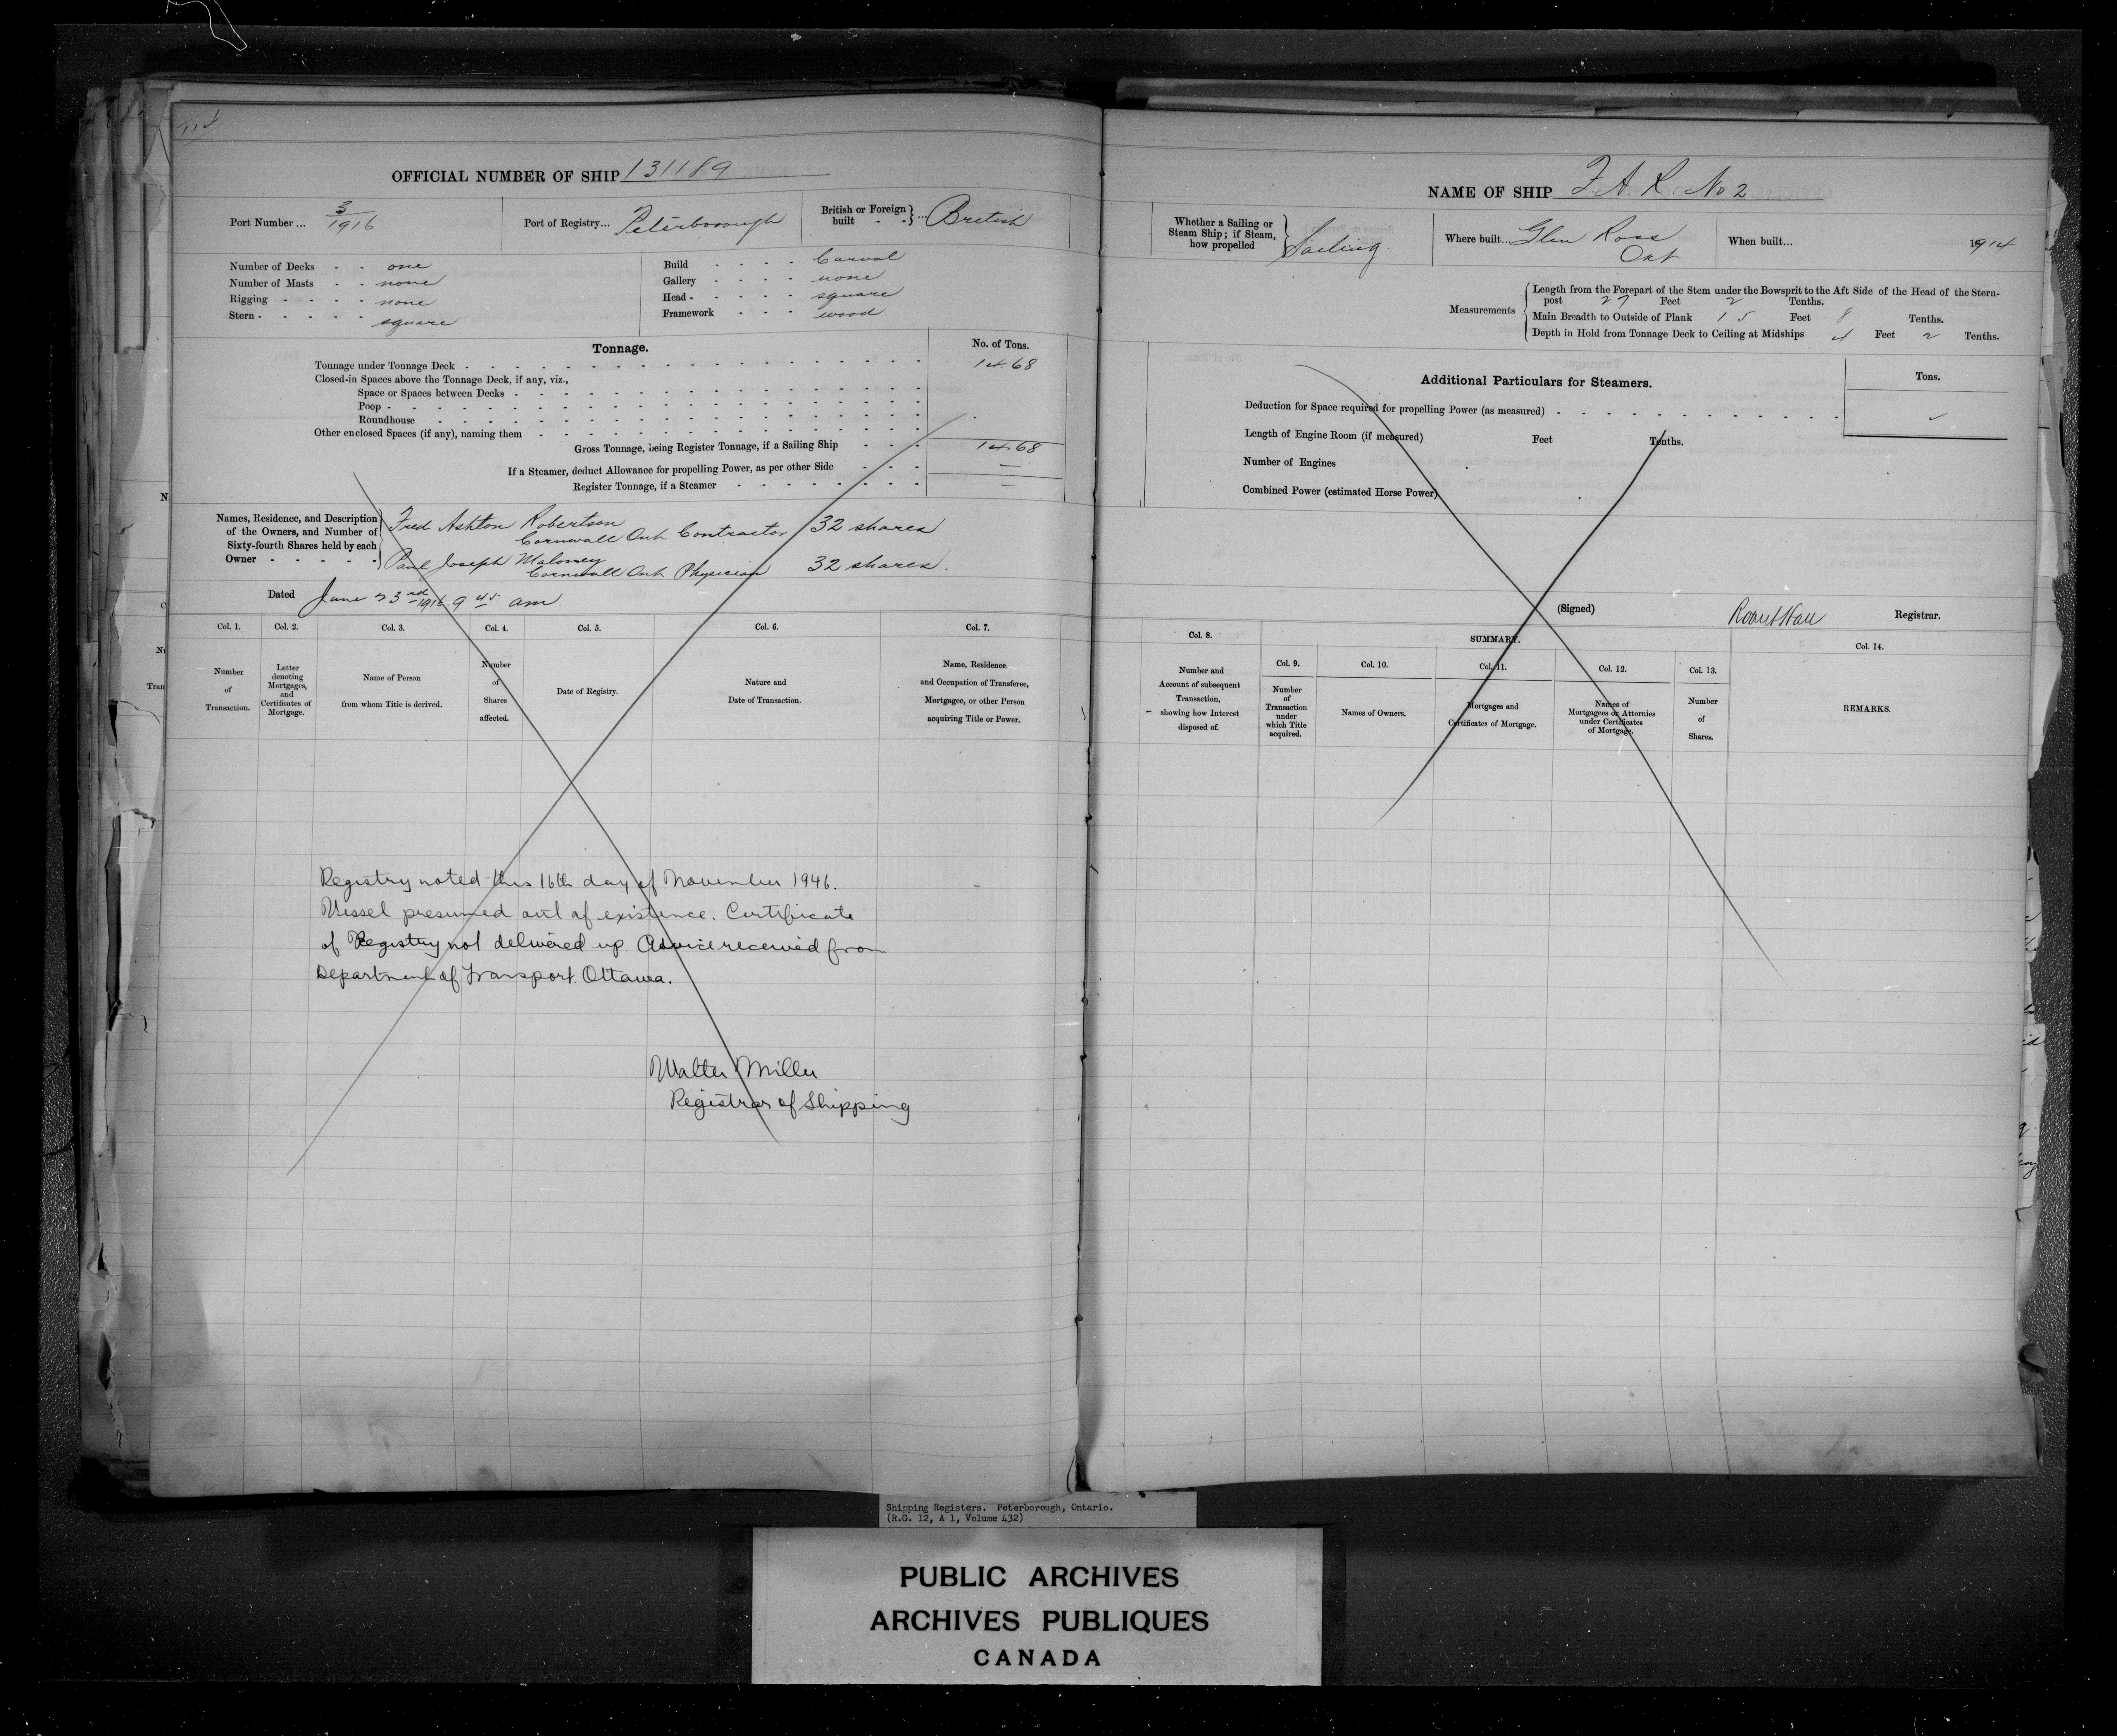 114
OFFICIAL NUMBER OF SHIP 131189
Port Number ... 3/1916
Port of Registry... Peterborough
British or Foreign built - - } ... British
Number of Decks - - one
Number of Masts - - none
Rigging - - - - none
Stern - - - - - square
Build - - - - Carval
Gallery - - - - none
Head - - - - - square
Framework - - - wood
Tonnage.
No. of Tons.
Tonnage under Tonnage Deck - 14.68
Closed-in Spaces above the Tonnage Deck, if any, viz.,
Space or Spaces between Decks -
Poop -
Roundhouse
Other enclosed Spaces (if any), naming them
Gross Tonnage, being Register Tonnage, if a Sailing Ship - - - 14.68
If a Steamer, deduct Allowance for propelling Power, as per other Side - - - —
Register Tonnage, if a Steamer - —
Names, Residence, and Description
of the Owners, and Number of
Sixty-fourth Shares held by each
Owner - - - - -
Fred Ashton Robertson
Cornwall Ont Contractor 32 shares
Paul Joseph Maloney
Cornwall Ont Physician 32 shares.
Dated June 23rd 1916 9 45 am.
Col. 1. Col. 2. Col. 3. Col. 4. Col. 5. Col. 6. Col. 7.
Number of Transaction.
Letter denoting Mortgages, and Certificates of Mortgage.
Name of Person from whom Title is derived.
Number of Shares affected.
Date of Registry.
Nature and Date of Transaction.
Name, Residence and Occupation of Transferee, Mortgagee, or other Person acquiring Title or Power.
Registry noted this 16th day of November 1946.
Vessel presumed out of existence. Certificate
of Registry not delivered up. Advice received from
Department of Transport. Ottawa.
Walter Miller
Registrar of Shipping
NAME OF SHIP F. A. R. No 2
Whether a Sailing or Steam Ship; if Steam, how propelled } Sailing
Where built... Glen Ross Ont
When built... 1914
Measurements
Length from the Forepart of the Stem under the Bowsprit to the Aft Side of the Head of the Stern-
post 27 Feet 2 Tenths.
Main Breadth to Outside of Plank 15 Feet 8 Tenths.
Depth in Hold from Tonnage Deck to Ceiling at Midships 4 Feet 2 Tenths.
Additional Particulars for Steamers.
Tons.
Deduction for Space required for propelling Power (as measured) -
Length of Engine Room (if measured) Feet Tenths.
Number of Engines
Combined Power (estimated Horse Power)
(Signed) Robert Hall Registrar.
Col. 8. SUMMARY. Col. 14.
Col. 9. Col. 10. Col. 11. Col. 12. Col. 13.
Number and Account of subsequent Transaction, showing how Interest disposed of.
Number of Transaction under which Title acquired.
Names of Owners.
Mortgages and Certificates of Mortgage.
Names of Mortgagees or Attornies under Certificates of Mortgage.
Number of Shares.
REMARKS.
Shipping Registers. Peterborough, Ontario.
(R.G. 12, A 1, Volume 432)
PUBLIC ARCHIVES
ARCHIVES PUBLIQUES
CANADA